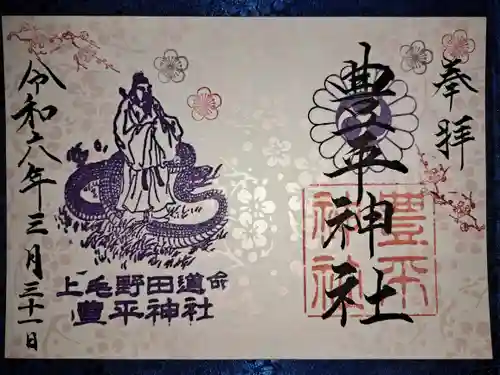 奉拝
豊平神社
豊平神社
上毛野田道命
豊平神社
令和六年三月三十一日